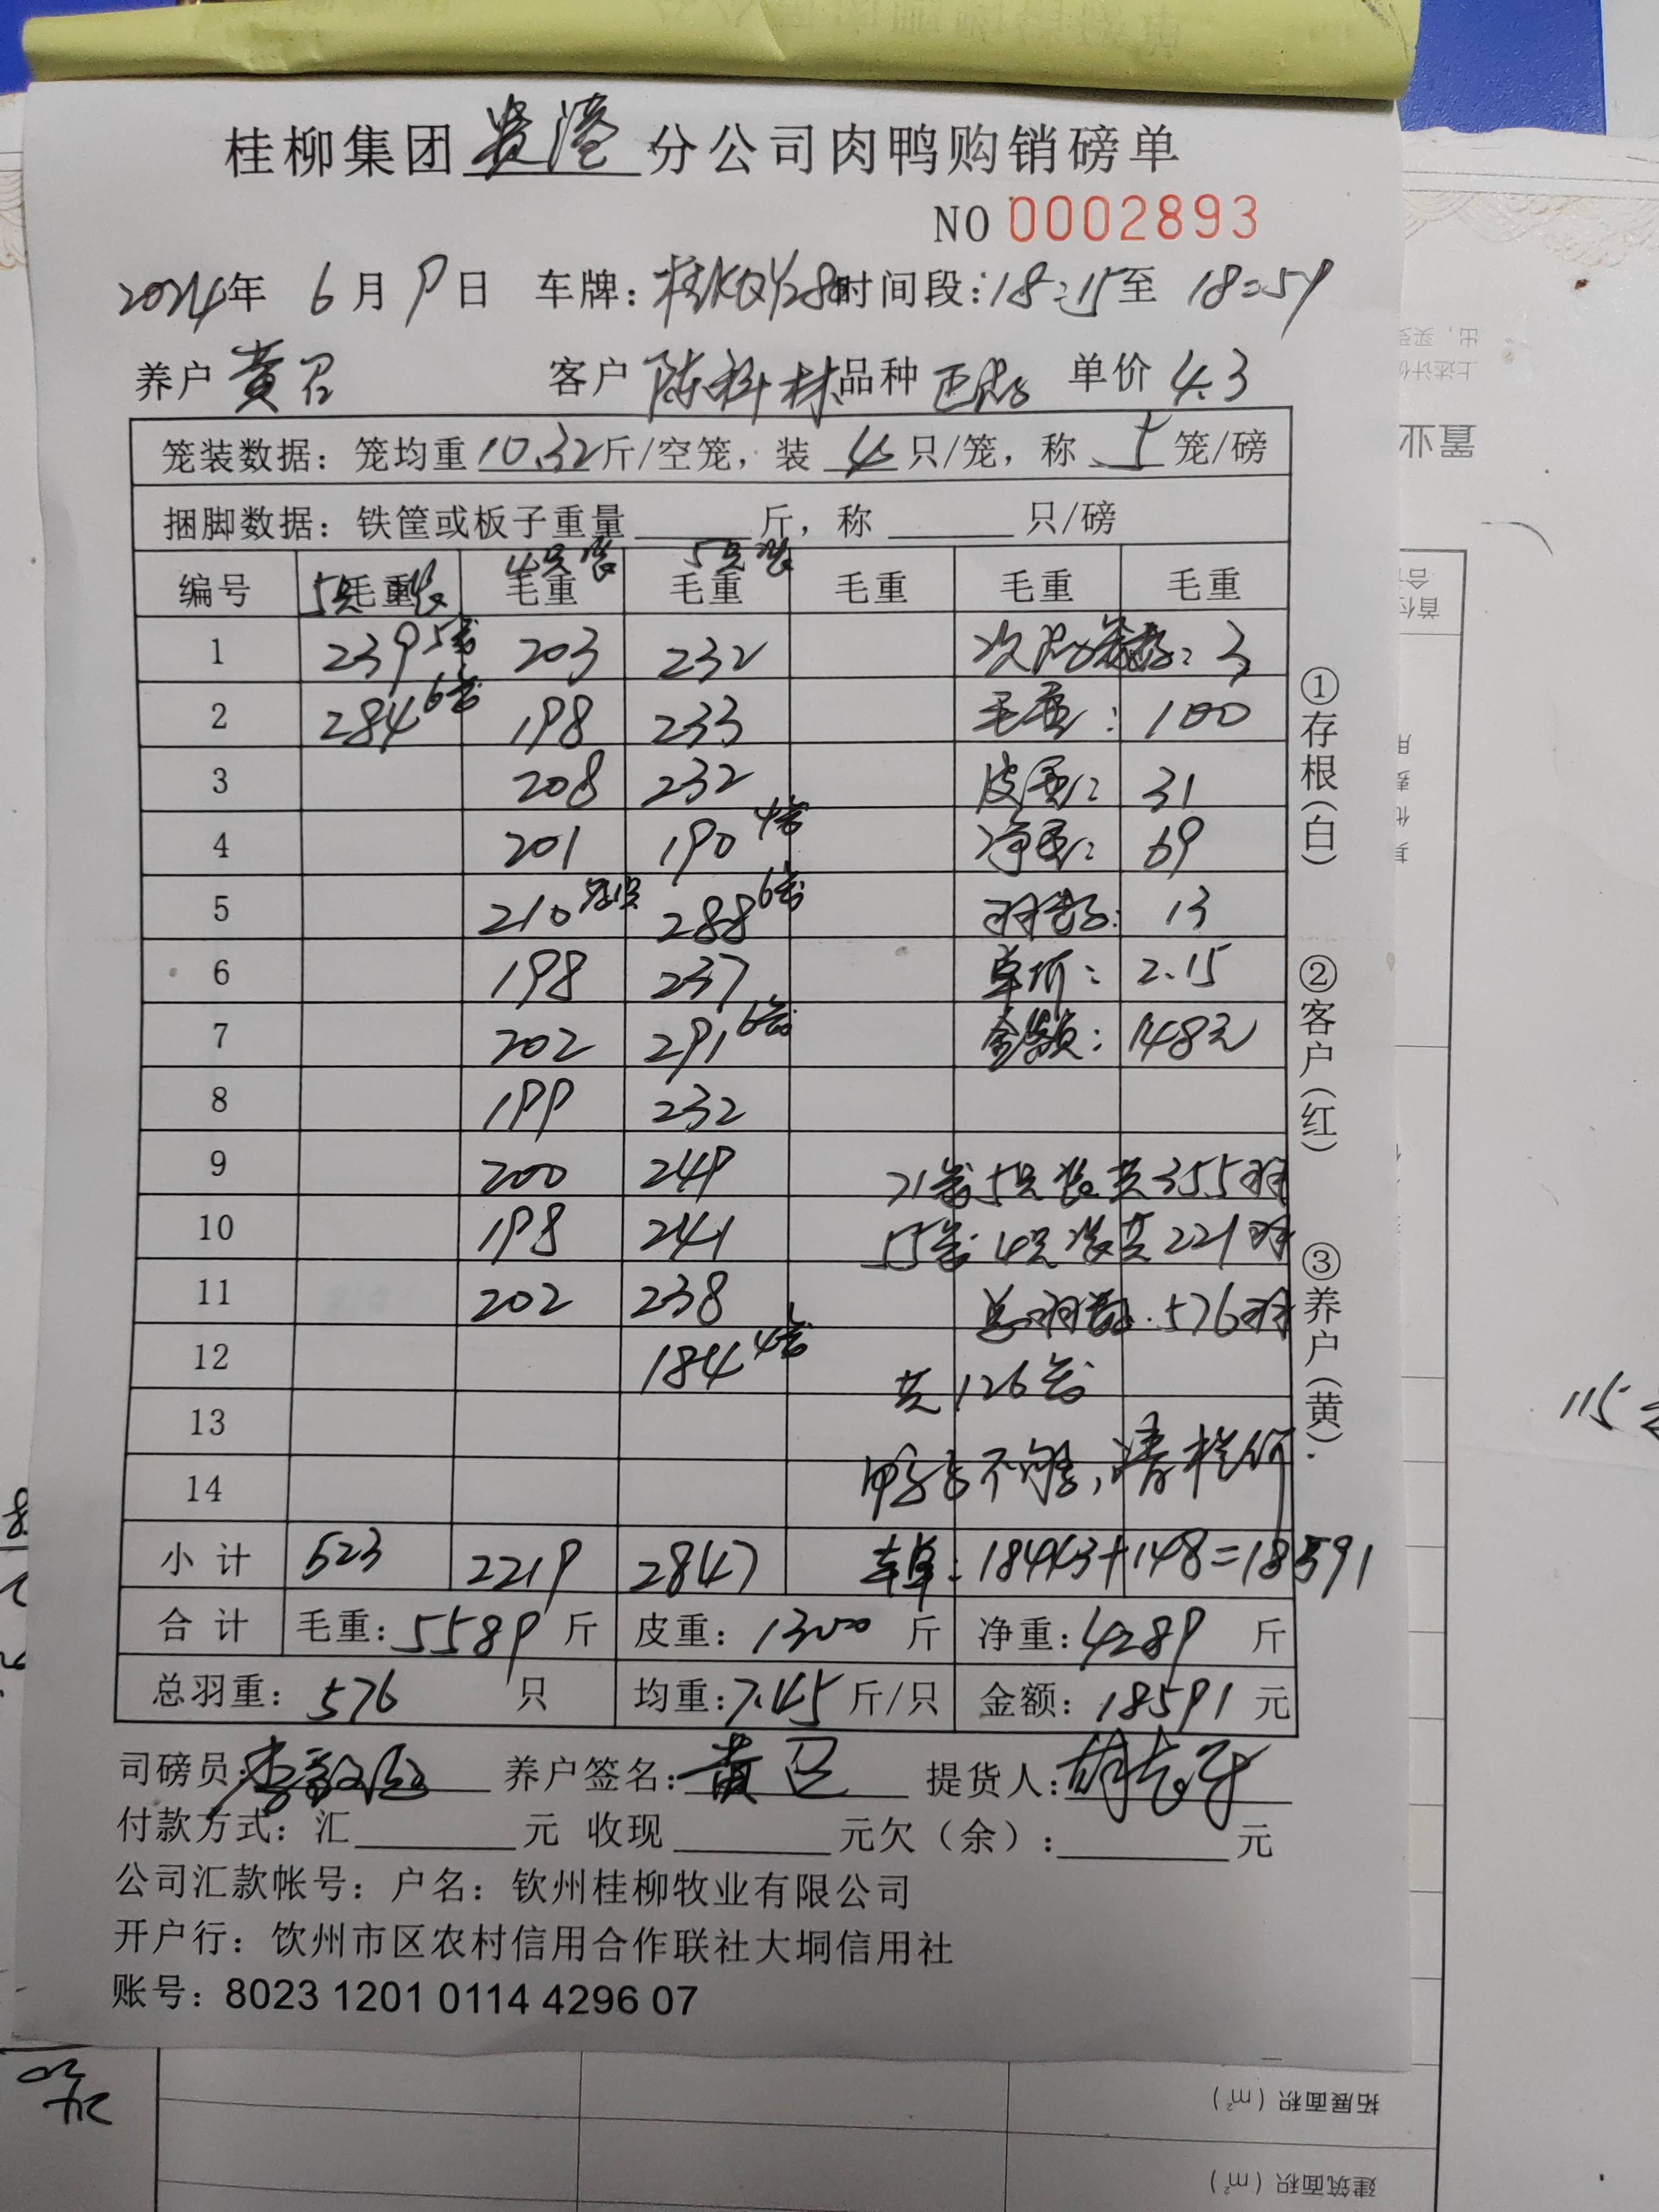 桂柳集团贵港分公司肉鸭购销磅单
NO 0002893
2024年 6月9日 车牌: 桂KQY28 时间段:18:15至 18:59
养户 黄召 客户 陈科林 品种 正品 单价 4.3
笼装数据: 笼均重10.32斤/空笼, 装 4 只/笼, 称 5 笼/磅
捆脚数据: 铁筐或板子重量 斤, 称 只/磅
5只装 4只装 5只装
编号 毛重 毛重 毛重 毛重 毛重 毛重
1 239 5笼 203 232 次鸭笼数: 3
2 284 6笼 198 233 毛重: 100
3 208 232 皮重: 31
4 201 190 4笼 净重: 69
5 210 288 6笼 羽数: 13
6 198 237 单价: 2.15
7 202 291 6笼 金额: 148元
8 199 232
9 200 249 71笼5只装共355羽
10 198 241 55笼4只装共221羽
11 202 238 总羽数: 576羽
12 184 4笼 共126笼
13
鸭子不够,
14
小计 523 2219 2847 18443+148=18591
合计 毛重:5589斤 皮重:1300斤 净重:4289斤
总羽重: 576 只 均重:7.45斤/只 金额: 18591元
司磅员: 养户签名: 黄召 提货人:
付款方式: 汇 元 收现 元欠(余): 元
公司汇款帐号: 户名: 钦州桂柳牧业有限公司
开户行: 饮州市区农村信用合作联社大垌信用社
账号: 8023 1201 0114 4296 07
①存根(白) ②客户(红) ③养户(黄)
置业
115
拓展面积 (m²)
建筑面积 (m²)